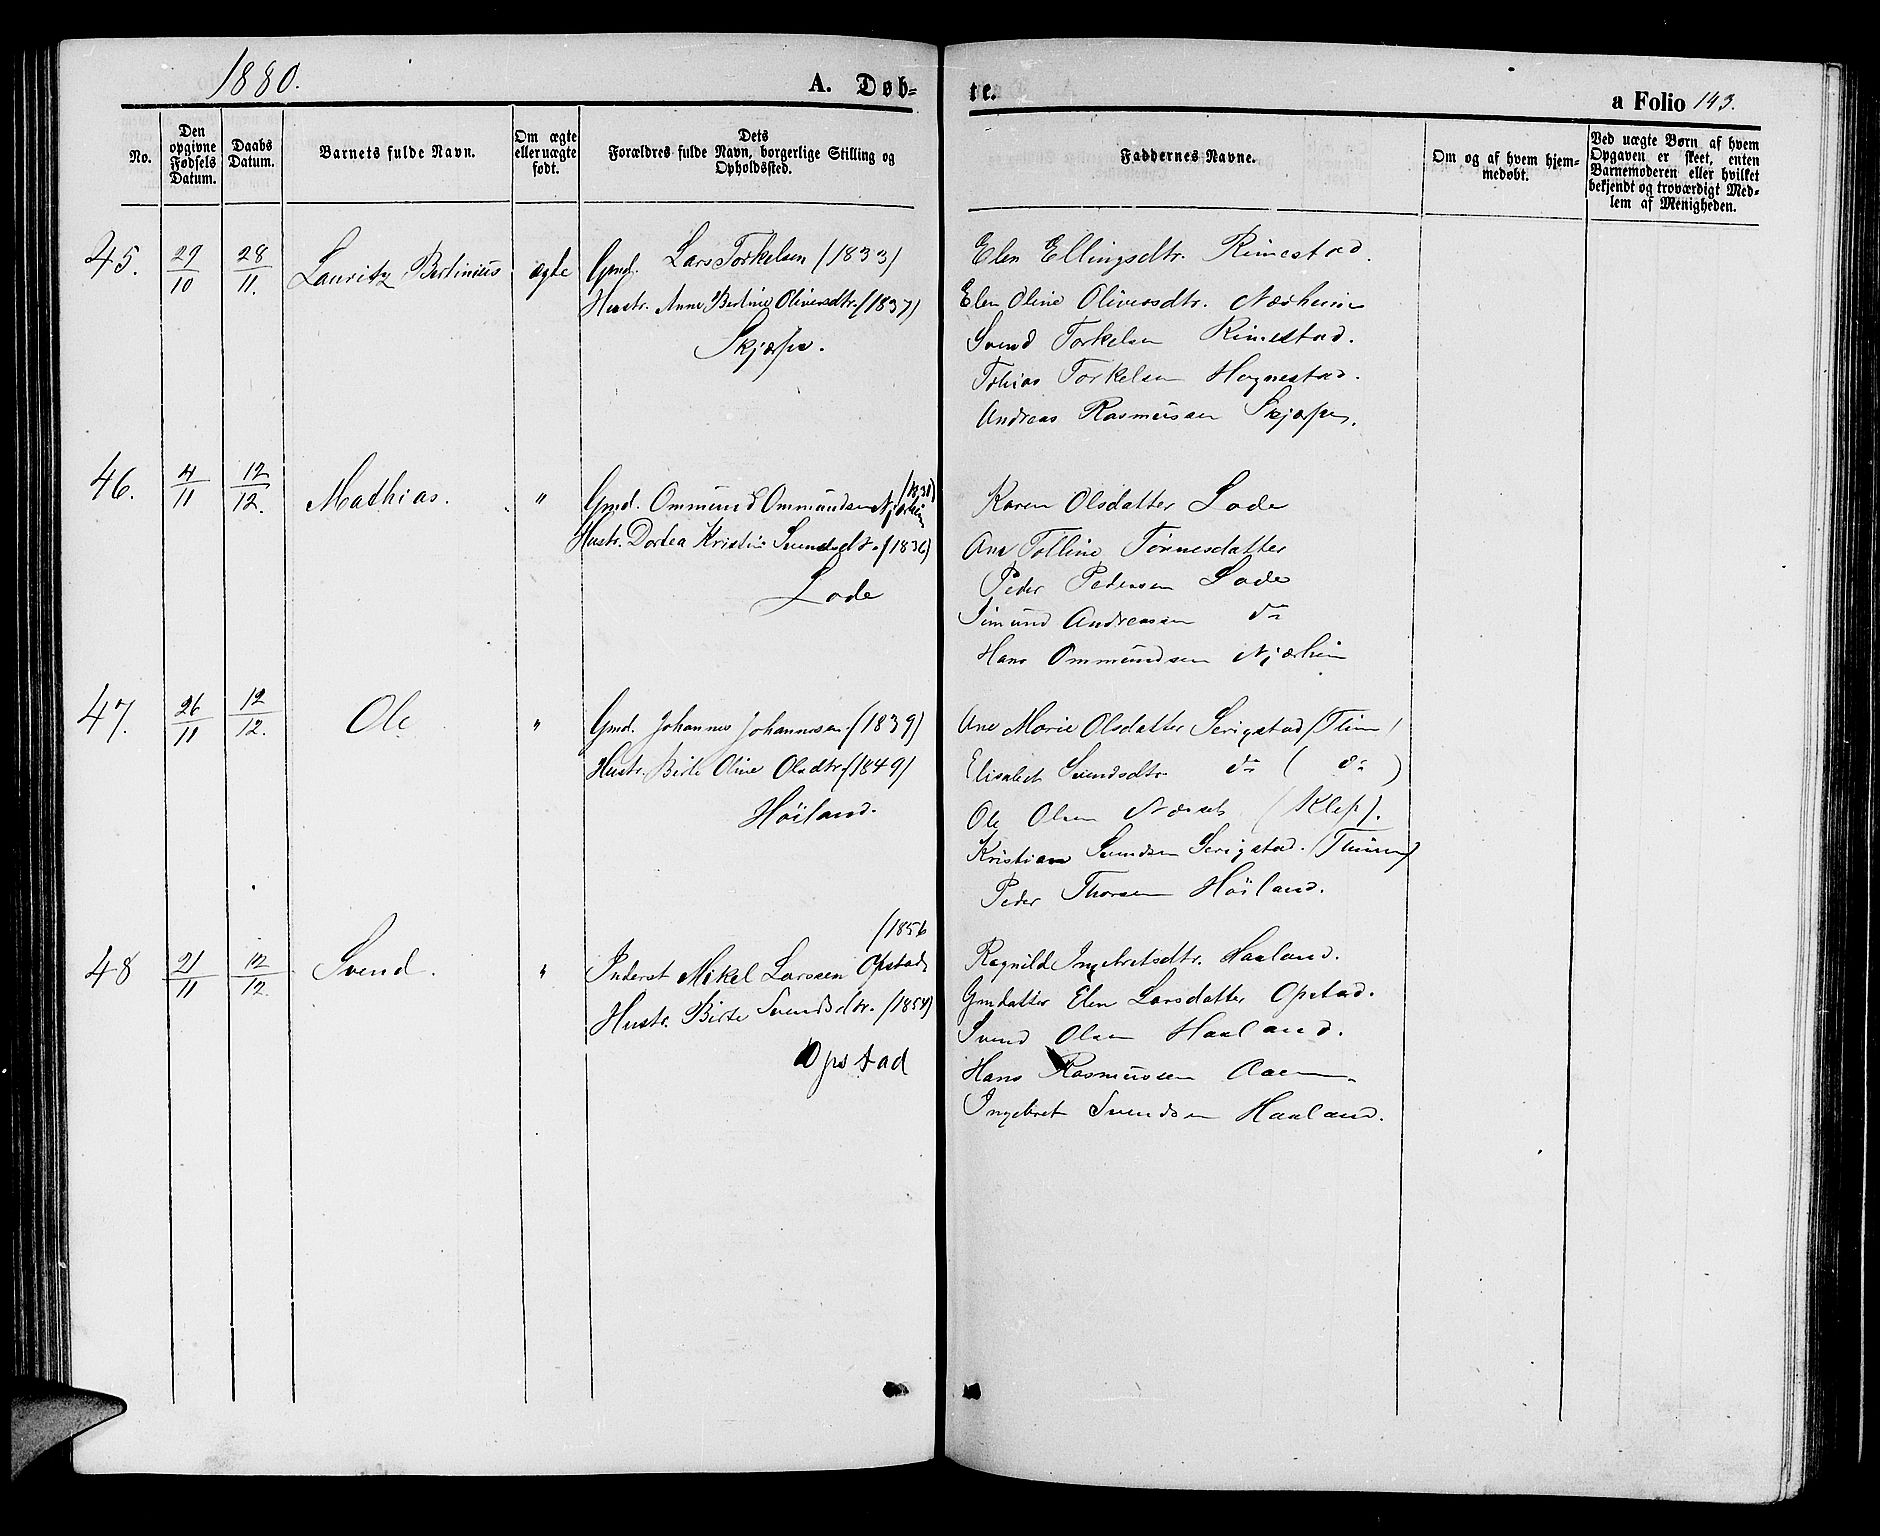 1880.
A. Døb=
te.
a Folio 143.
No.
Den opgivne Fødsels Datum.
Daabs Datum.
Barnets fulde Navn.
Om ægte eller uægte født.
Dets Forældres fulde Navn, borgerlige Stilling og Opholdssted.
Faddernes Navne.
Om og af hvem hjem=medøbt.
Ved uægte Børn af hvem Opgaven er skeet, enten Barnemoderen eller hvilket bekjendt og troværdigt Med=lem af Menigheden.
45. 29/10 28/11. Lauritz Bertinius ægte Gmd. Lars Torkelsen (1833)
Hustr. Anne Bertine Oliversdtr. (1837)
Skjærpe.
Elen Ellingsdtr. Rimestad.
Elen Oline Oliversdtr. Nærheim
Svend Torkelsen Rimestad.
Tobias Torkelsen Hognestad.
Andreas Rasmussen Skjærpe.
46. 4/11 12/12. Mathias. " Gmd. Ommund Ommundsen Njærheim
Hustr. Dortea Kristine Svendsdtr. (1836)
Lode
Karen Olsdatter Lode
Ane Tolline Tønnesdatter
Peder Pedersen Lode
Simund Andreassen do
Hans Ommundsen Njærheim
47. 26/11 12/12. Ole " Gmd. Johannes Johannesen (1839)
Hustr. Birte Oline Olsdtr. (1849)
Höiland.
Ane Marie Olsdatter Serigstad (Thime)
Elisabet Svendsdtr. do ( do )
Ole Olsen (Klep).
Kristian Svendsen Serigstad. (Thime)
Peder Thorsen Höiland.
48 21/11 12/12. Svend. " Inderst Mikel Larssen Opstad (1856
Hustr. Birte Svendsdtr. (1854)
Opstad
Ragnilde Ingebretsdtr. Haaland.
Gmdatter Elen Larsdatter Opstad.
Svend Olsen Haaland.
Hans Rasmussen
Ingebret Svendsen Haaland.